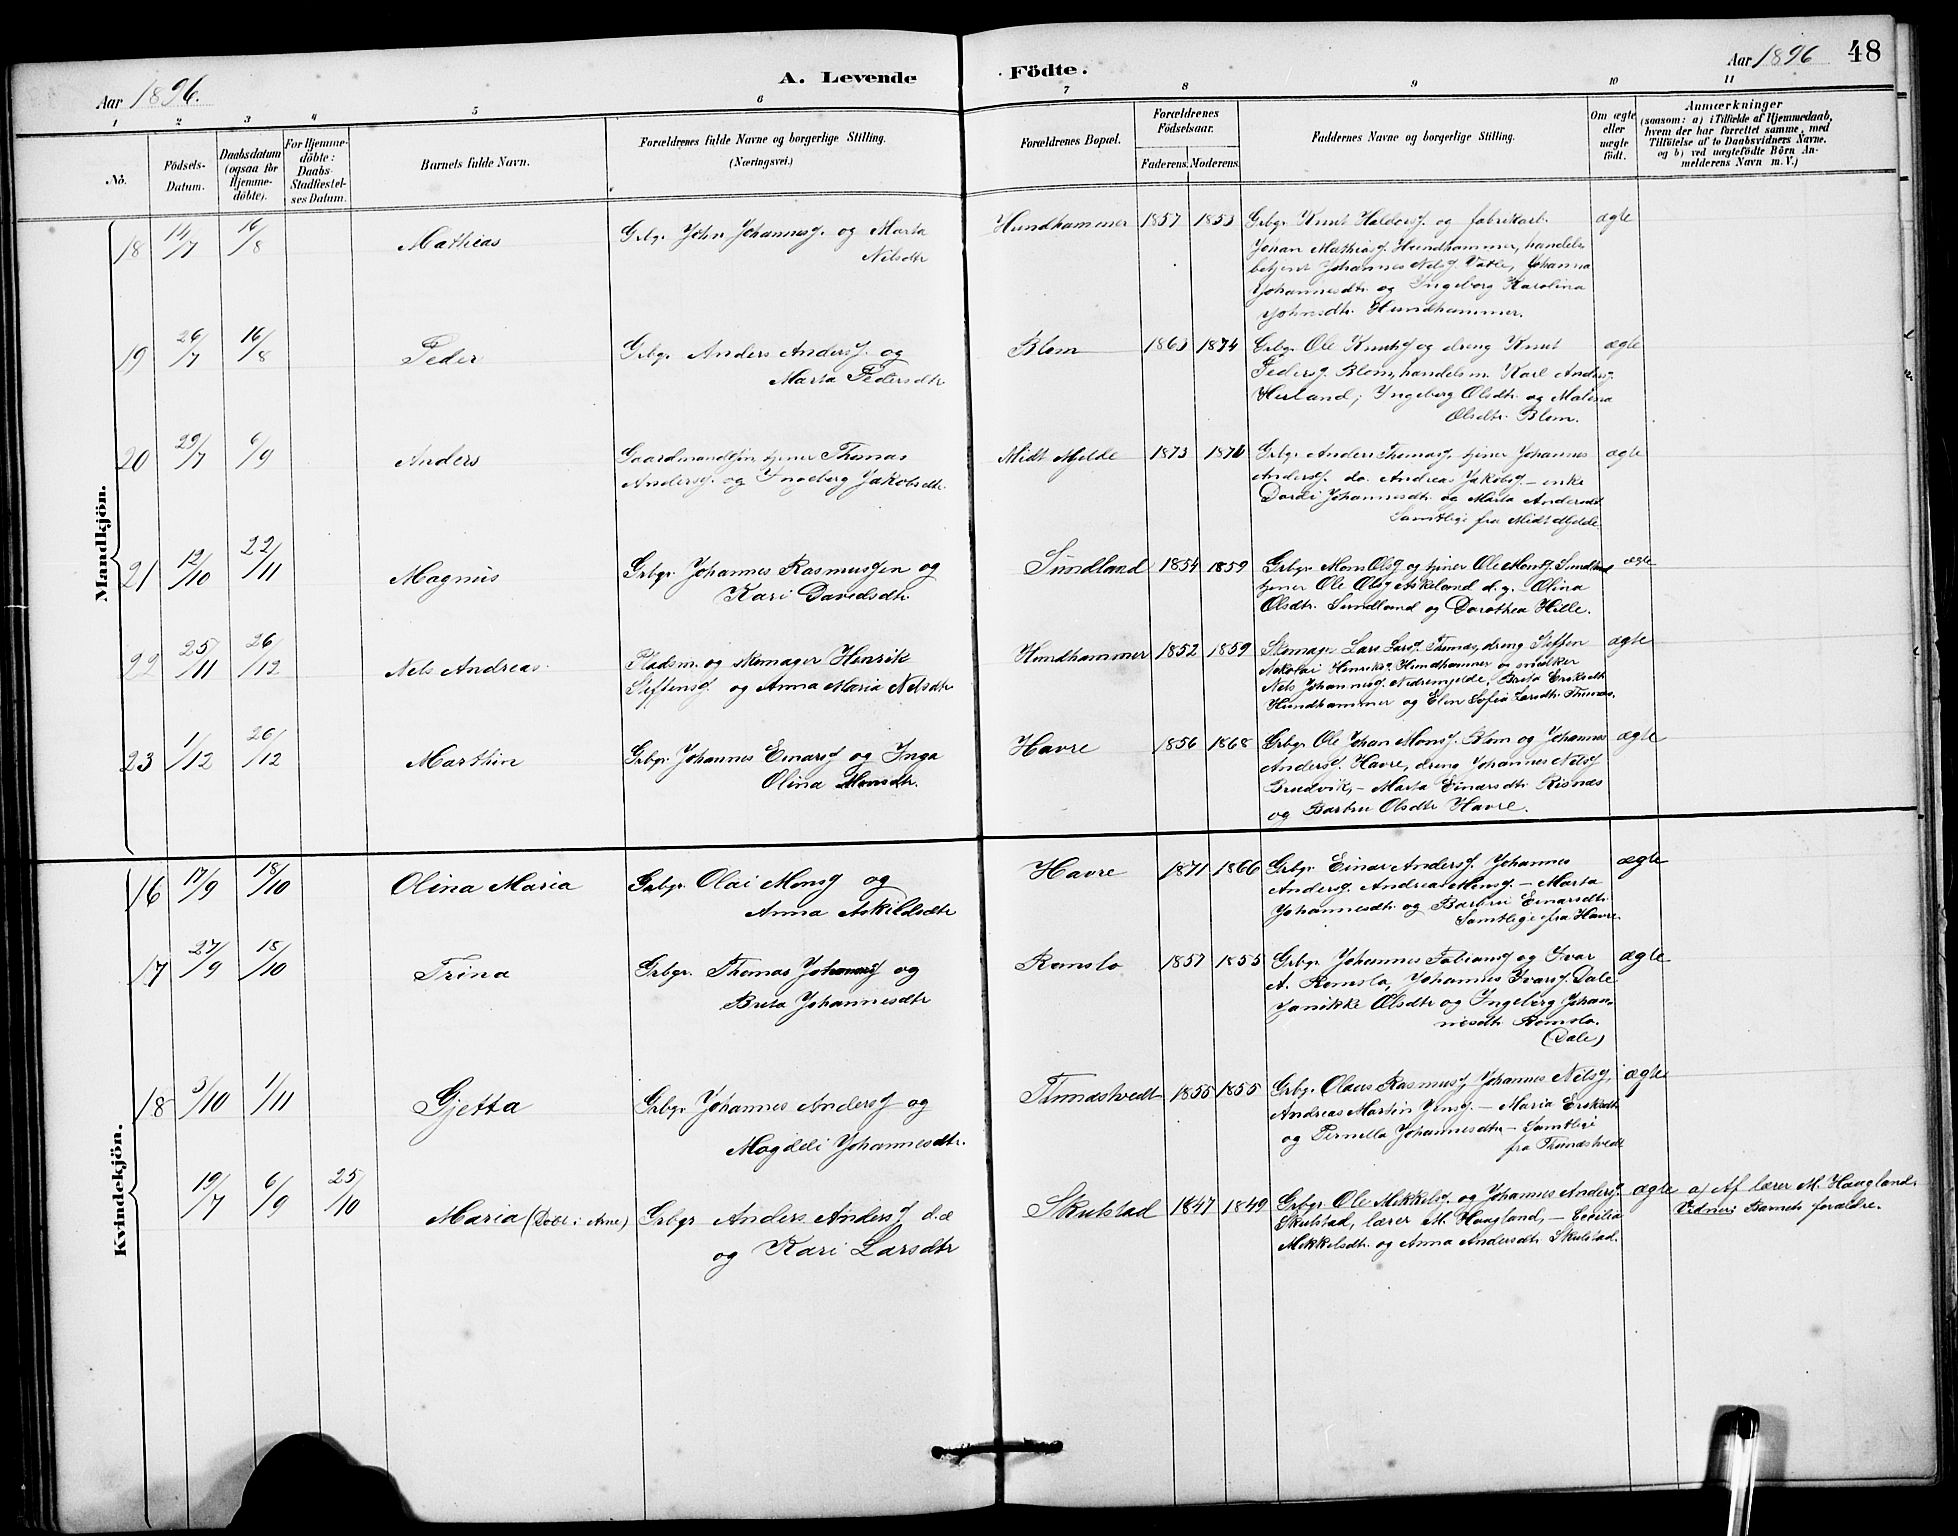 Aar 1896.
A. Levende Födte.
Aar 1896 48
1 2 3 4 5 6 7 8 9 10 11
No.
Födsels-
Datum.
Daabsdatum
(ogsaa for
Hjemme-
döbte).
For Hjemme-
döbte:
Daabs-
Stadfæstel-
ses Datum.
Barnets fulde Navn.
Forældrenes fulde Navne og borgerlige Stilling.
(Næringsvei.)
Forældrenes Bopæl.
Forældrenes
Födselsaar.
Faderens. Moderens.
Faddernes Navne og borgerlige Stilling.
Om ægte
eller
uægte
født.
Anmærkninger
(saasom: a) i Tilfælde af Hjemmedaab,
hvem der har forrettet samme, med
Tilføielse af to Daabsvidners Navne.
og b) ved uægtefödte Börn An-
melderens Navn m. V.)
Mandkjön.
18 14/7 16/8 Mathias Grbgr. John Johannesf. og Marta
Nilsdtr
Hundhammer 1857 1853 Grbgr. Knut Haldorsf. og fabrikarb. ægte
Johan Mathiasf. Hundhammer, handels
betjent Johannes Nilsf. Vatle, Johanna
Johannesdtr. og Ingeborg Karolina
Johnsdtr. Hundhammer.
19 26/7 16/8 Peder Grbgr. Anders Andersf. og
Marta Pedersdtr
Blom 1863 1874 Grbgr. Ole Knutsf og dreng Knut ægte
Pedersf. Blom, handelsm. Karl Andersf.
Herland, Ingeborg Olsdtr. og Malena
Olsdtr. Blom.
20 29/7 6/9 Anders Gaardmandssøn tjener Thomas
Andersf. og Ingeborg Jakobsdtr.
Midt Mjelde 1873 1876 Grbgr. Anders Thomasf. tjener Johannes ægte
Andersf. do. Andreas Jakobsf. – enke
Dordi Johannesdtr. og Marta Andersdtr.
Samtlige fra Midt Mjelde.
21 12/10 22/11 Magnus Grbgr. Johannes Rasmussen og
Kari Davidsdtr.
Sundland 1854 1859 Grbgr. Mons Olsf og tjener Ole Monsf. Sundland ægte
tjener Ole Olsf Askeland d.y. Olina
Olsdtr. Sundland og Dorothea Hille.
22 25/11 26/12 Nils Andreas Pladsm. og skomager Henrik
Steffensf. og Anna Maria Nilsdtr
Hundhammer 1852 1859 Skomager Lars Larsf. Thunæs, dreng Steffen ægte
Nikolai Henriksf. Hundhammer og snedker
Nils Johannesf. Nedremjelde, Brita Eriksdtr.
Hundhammer og Elen Sofia Larsdtr. Thunæs.
23 1/12 26/12 Marthin Grbgr. Johannes Einarsf og Inga
Olina Monsdtr.
Havre 1856 1868 Grbgr. Ole Johan Monsf. Blom og Johannes ægte
Andersf. Havre, dreng Johannes Nilsf
Bruvik, – Marta Einarsdtr. Risnæs
og Barbru Olsdtr Havre.
Kvindekjön.
16 17/9 18/10 Olina Maria Grbgr. Olai Monsf og
Anna Askildsdtr
Havre 1871 1866 Grbgr. Einar Andersf. Johannes ægte
Andersf. Andreas Monsf. – Marta
Johannesdtr. og Barbru Einarsdtr.
Samtlige fra Havre.
17 27/9 18/10 Trina Grbgr. Thomas Johannesf og
Brita Johannesdtr
Romslo 1857 1855 Grbgr. Johannes Fabiansf og Ivar ægte
A. Romslo, Johannes Ivarsf. Dale
Janikke Olsdtr og Ingeborg Johan-
nesdtr. Romslo.
(Dale)
18 3/10 1/11 Gjetta Grbgr. Johannes Andersf og
Magdeli Johannesdtr.
Thunæstvedt 1855 1855 Grbgr. Olaus Rasmusf, Johannes Nilsf, ægte
Andreas Martin Jensf. – Maria Eriksdtr
og Pernella Johannesdtr – Samtlige
fra Thunæstvedt
19/7 6/9 25/10 Maria (Døbt i Arne) Grbgr Anders Andersf d.æ
og Kari Larsdtr
Skulstad 1847 1849 Grbgr Ole Mikkelsf. og Johannes Andersf. ægte a) Af lærer M. Haagland.
Skulstad, lærer M. Haagland, – Cecilia Vidner: Barnets forældre.
Mikkelsdtr. og Anna Andersdtr Skulstad.